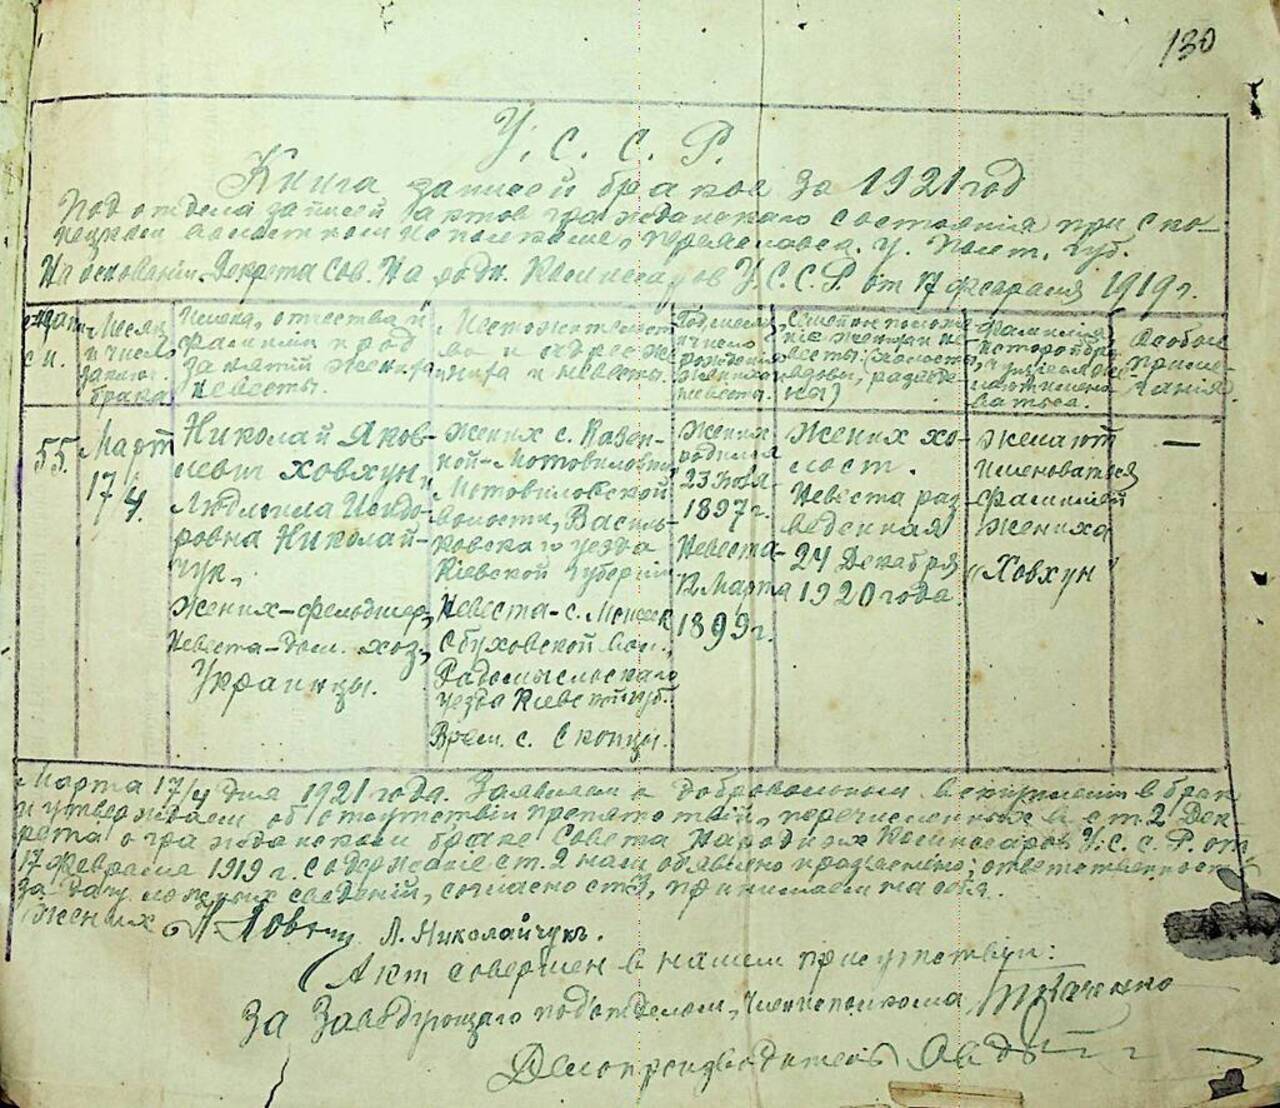 130
У. С. С. Р.
Книга записей браков за 1921 год
Подотдела записей актов гражданского состоянія при Ско-
пецком волостном исполкоме, Переяславск. у. Полт. губ.
На основаніи Декрета Сов. Народн. Комиссаров У.С.С.Р. от 17 февраля 1919 г.
Месяц
и число
заключ.
брака
Имена, отчества и
фамилии и род
занятий жениха
невесты.
Местожительст
во и адрес же
ниха и невесты.
Год, месяц
и число
рождения
жениха
невесты.
Семейн. положе
ніе жениха и не
весты: (холост,
вдовы, разведе
ны)
Фамилия,
которой бра
желают имено
ваться.
Особые
приме-
чания.
55.
Март
17/4.
Николай Яков-
левич Ховхун и
Людмила Исидо-
ровна Николай-
чук.
Жених-фельдшер,
Невеста-дом. хоз.,
Украинцы.
Жених с. Казен-
ной-Мотовиловки
Мотовиловской
волости, Василь-
ковского уезда
Кіевской Губерніи
Невеста-с.
Обуховской вол.,
Радомысльского
уезда Кіевской губ.
Врем. с. Скопцы.
Жених
родился
23 Ноя.
1897 г.
Невеста-
12 Марта
1899 г.
Жених хо-
лост.
Невеста раз
веденная
24 Декабря
1920 года.
Желают
именоваться
фамилией
жениха
„Ховхун"
—
Марта 17/4 дня 1921 года. Заявляем о добровольном вступленіи в брак
и утверждаем об отсутствіи препятствій, перечисленных в ст. 2 Дек
рета о гражданском браке Совета Народных Комиссаров У.С.С.Р. от
17 февраля 1919 г. содержаніе ст. 2 нам объявлено и разъяснено; ответственность
за дачу ложных сведений, согласно ст 3, принимаем на себя.
Жених Ховхун Л. Николайчукъ.
Акт совершен в нашем присутствіи:
За Заведующаго подотделом, Член исполкома Ткаченко
Делопроизводитель